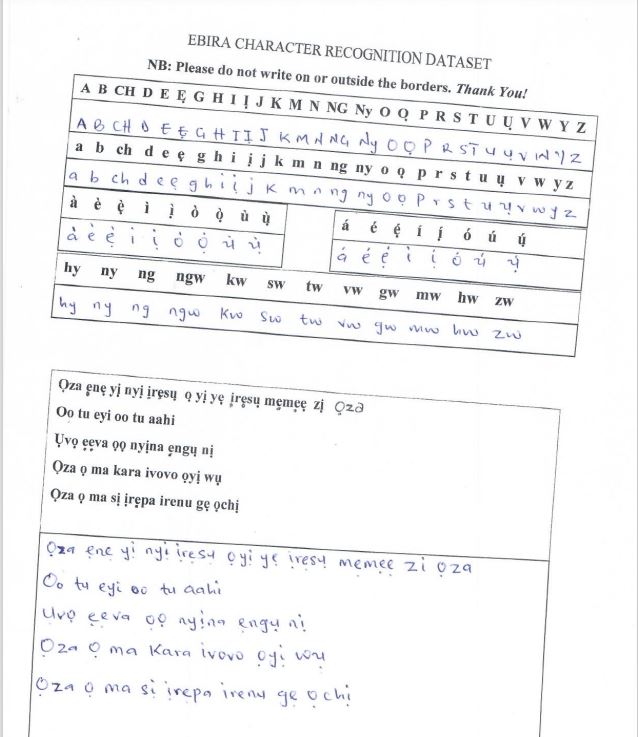 EBIRA CHARACTER RECOGNITION DATASET
NB: Please do not write on or outside the borders. Thank You!
A B CH D E Ẹ G H I Ị J K M N NG Ny O Ọ P R S T U Ụ V W Y Z
A B CH D E Ẹ G H I Ị J K M N NG Ny O Ọ P R S T U Ụ V W Y Z
a b ch d e ẹ g h i ị j k m n ng ny o ọ p r s t u ụ v w y z
a b ch d e ẹ g h i ị j k m n ng ny o ọ p r s t u ụ v w y z
à è ẹ̀ ì ị̀ ò ọ̀ ù ụ̀
à è ẹ̀ ì ị̀ ò ọ̀ ù ụ̀
á é ẹ́ í ị́ ó ú ụ́
á é ẹ́ í ị́ ó ú ụ́
hy ny ng ngw kw sw tw vw gw mw hw zw
hy ny ng ngw kw sw tw vw gw mw hw zw
Ọza ẹnẹ yị nyị ịrẹsụ ọ yị yẹ ịrẹsụ mẹmẹẹ zị Ọza
Oo tu eyi oo tu aahi
Ụvọ ẹẹva ọọ nyịna ẹngụ nị
Ọza ọ ma kara ivovo ọyị wụ
Ọza ọ ma sị ịrẹpa irenu gẹ ọchị
Ọza ẹnẹ yị nyị ịrẹsụ ọyị yẹ ịrẹsụ mẹmẹẹ zị Ọza
Oo tu eyi oo tu aahi
Uvọ ẹẹva ọọ nyịna ẹngụ nị
Ọza Ọ ma Kara ivovo ọyị wụ
Ọza ọ ma sị ịrẹpa irenu gẹ ọchị